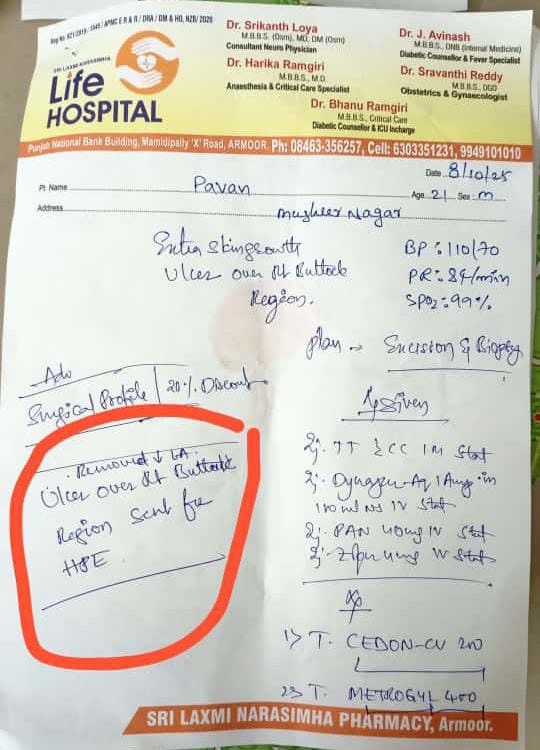 Reg No. 621/2019 / 5645 / APMC E R & R / DRA / DM & HO, NZB/ 2020
SRI LAXMI NARASIMHA
Life
HOSPITAL
Dr. Srikanth Loya
M.B.B.S. (Osm), MD, DM (Osm)
Consultant Neuro Physician
Dr. Harika Ramgiri
M.B.B.S., M.D.
Anaesthesia & Critical Care Specialist
Dr. J. Avinash
M.B.B.S., DNB (Internal Medicine)
Diabetic Counsellor & Fever Specialist
Dr. Sravanthi Reddy
M.B.B.S., DGO
Obstetrics & Gynaecologist
Dr. Bhanu Ramgiri
M.B.B.S., Critical Care
Diabetic Counsellor & ICU Incharge
Punjab National Bank Building, Mamidipally 'X' Road, ARMOOR. Ph: 08463-356257, Cell: 6303351231, 9949101010
Date 8/10/25
Pt. Name Pavan Age 21 Sex m
Address Nagar
Extra Skin growth
Ulcer over Rt Buttock
Region.
BP: 110/70
PR: 84/min
SPO2: 99%
plan → Excision & Biopsy
Adv
Surgical Profile / 20% Discount
Removed ↓ LA.
Ulcer over Rt Buttock
Region Sent for
HPE.
Rx given
Inj. TT ½ CC IM Stat
Inj. Dynapar-Aq 1 Amp in
100 ml NS IV Stat
Inj. PAN 40mg IV Stat
Inj. Zofer 4mg IV Stat
Rx
1) T. CEDON-CV 200
2) T. METROGYL 400
SRI LAXMI NARASIMHA PHARMACY, Armoor.